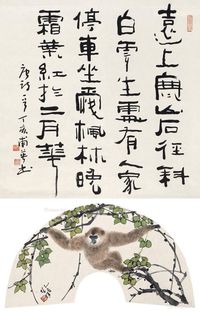 遠上寒山石徑斜
白雲生處有人家
停車坐愛楓林晚
霜葉紅於二月華
丁亥